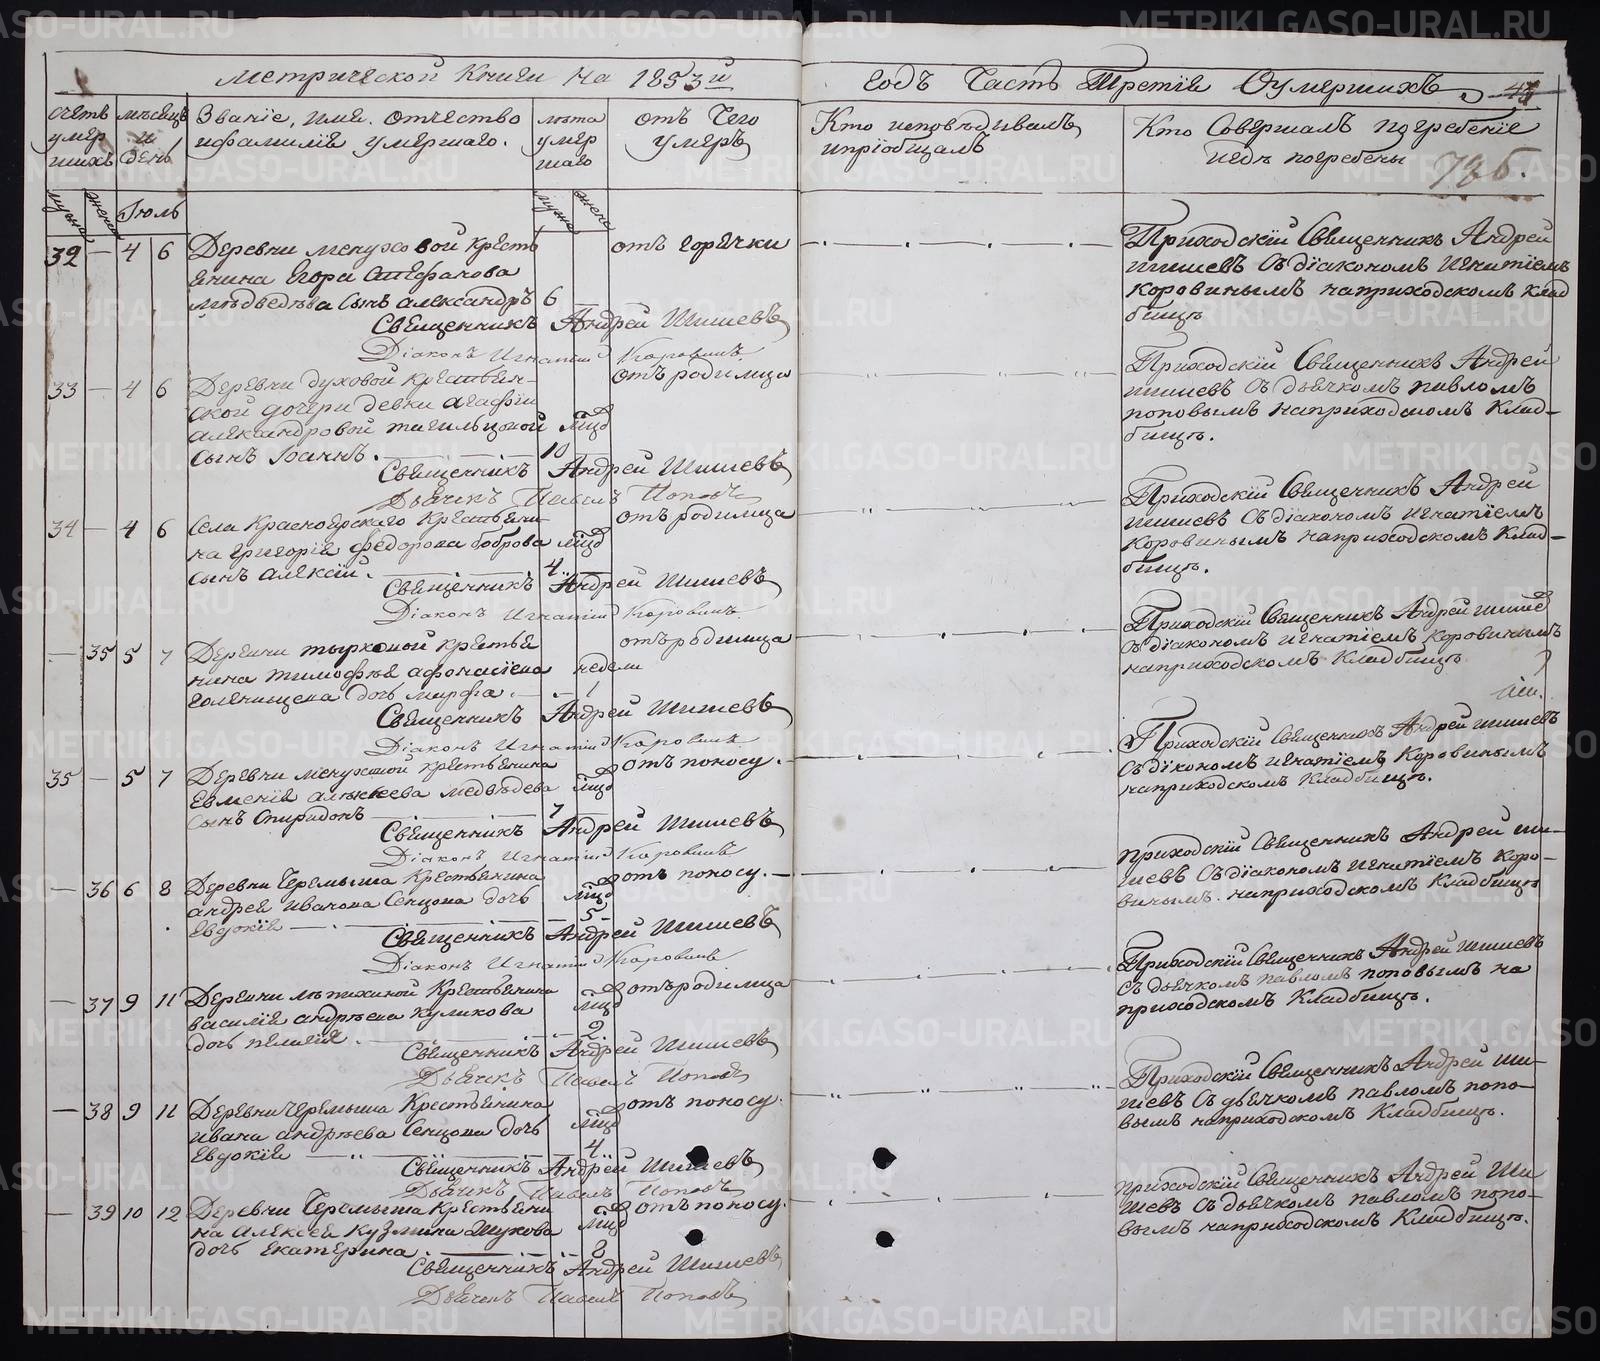 Метрической Книги на 1853й
годъ Часть Третiя Оумершихъ
счетъ умер шихъ
мѣсяцъ и день
Званiе, имя, отчество
ифамилiя умершаго.
лѣта умер шаго
отъ Чего
умеръ
Кто исповѣдывалъ
ипрiобщалъ
Кто Совершалъ погребенiе
игдѣ погребены
Iюль
32 — 4 6 Деревни менуховой кресть
янина Егора Стефанова
мѣдведѣва Сынъ александръ 6
отъ горячки
Священникъ Андрей Шишевъ
Дiаконъ Игнатiй Коровинъ
Приходскiй Священникъ Андрей
шишевъ Съ дiакономъ игнатiемъ
коровинымъ наприходскомъ клад
бищѣ
33 — 4 6 Деревни духовой крестьян-
ской дочери девки агафiи
александровой тагильцовой
сынъ Iоаннъ. 10
отъ родимца
Священникъ Андрей Шишевъ
Дьячекъ Павелъ Поповъ
Приходскiй Священникъ Андрей
шишевъ Съ дьячкомъ павломъ
поповымъ наприходскомъ Клад-
бищѣ.
34 — 4 6 Села Красноярскаго Крестьяни-
на григорiя федорова боброва
сынъ алексiй. 4
отъ родимца
Священникъ Андрей Шишевъ
Дiаконъ Игнатiй Коровинъ
Приходскiй Священникъ Андрей
шишевъ Съ дiакономъ игнатiемъ
Коровинымъ наприходскомъ Клад-
бищѣ.
— 35 5 7 Деревни тырковой крестья
нина тимофѣя афонасiева
голенищева дочь марфа. недели 1
отъ родимца
Священникъ Андрей Шишевъ
Дiаконъ Игнатiй Коровинъ
Приходскiй Священникъ Андрей шишев
съ дiакономъ игнатiемъ Коровинымъ
наприходскомъ Кладбищѣ
35 — 5 7 Деревни менуховой крестьянина
Евменiя алексеева медвѣдева
сынъ Спиридонъ 7
отъ поносу.
Священникъ Андрей Шишевъ
Дiаконъ Игнатiй Коровинъ
Приходскiй Священникъ Андрей шишевъ
Съ дiкономъ игнатiемъ Коровинымъ
наприходскомъ Кладбищѣ.
— 36 6 8 Деревни Черемыша Крестьянина
андрея иванова Сенцова дочь
Евдокiя 5
отъ поносу.
Священникъ Андрей Шишевъ
Дiаконъ Игнатiй Коровинъ
приходскiй Священникъ Андрей ши-
шевъ Съ дiакономъ игнатiемъ Коро-
винымъ. наприходскомъ Кладбищѣ
— 37 9 11 Деревни лѣпихиной Крестьянина
василiя андрѣева куликова
дочь пелагiя. 2
отъ родимца
Священникъ Андрей Шишевъ
Дьячекъ Павелъ Поповъ
Приходскiй Священникъ Андрей Шишевъ
съ дьячкомъ павломъ поповымъ на
приходскомъ Кладбищѣ.
— 38 9 11 Деревни Черемыша Крестьянина
ивана андрѣева Сенцова дочь
Евдокiя 4
отъ поносу.
Священникъ Андрей Шишевъ
Дьячекъ Павелъ Поповъ
Приходскiй Священникъ Андрей Ши-
шевъ Съ дьячкомъ павломъ попо-
вымъ наприходскомъ Кладбищѣ.
— 39 10 12 Деревни Черемыша Крестьяни
на Алексея Кузмина Шукова
дочь екатерина. 8
отъ поносу.
Священникъ Андрей Шишевъ
Дьячекъ Павелъ Поповъ
приходскiй Священникъ Андрей Ши
шевъ Съ дьячкомъ павломъ попо-
вымъ наприходскомъ Кладбищѣ.
METRIKI.GASO-URAL.RU